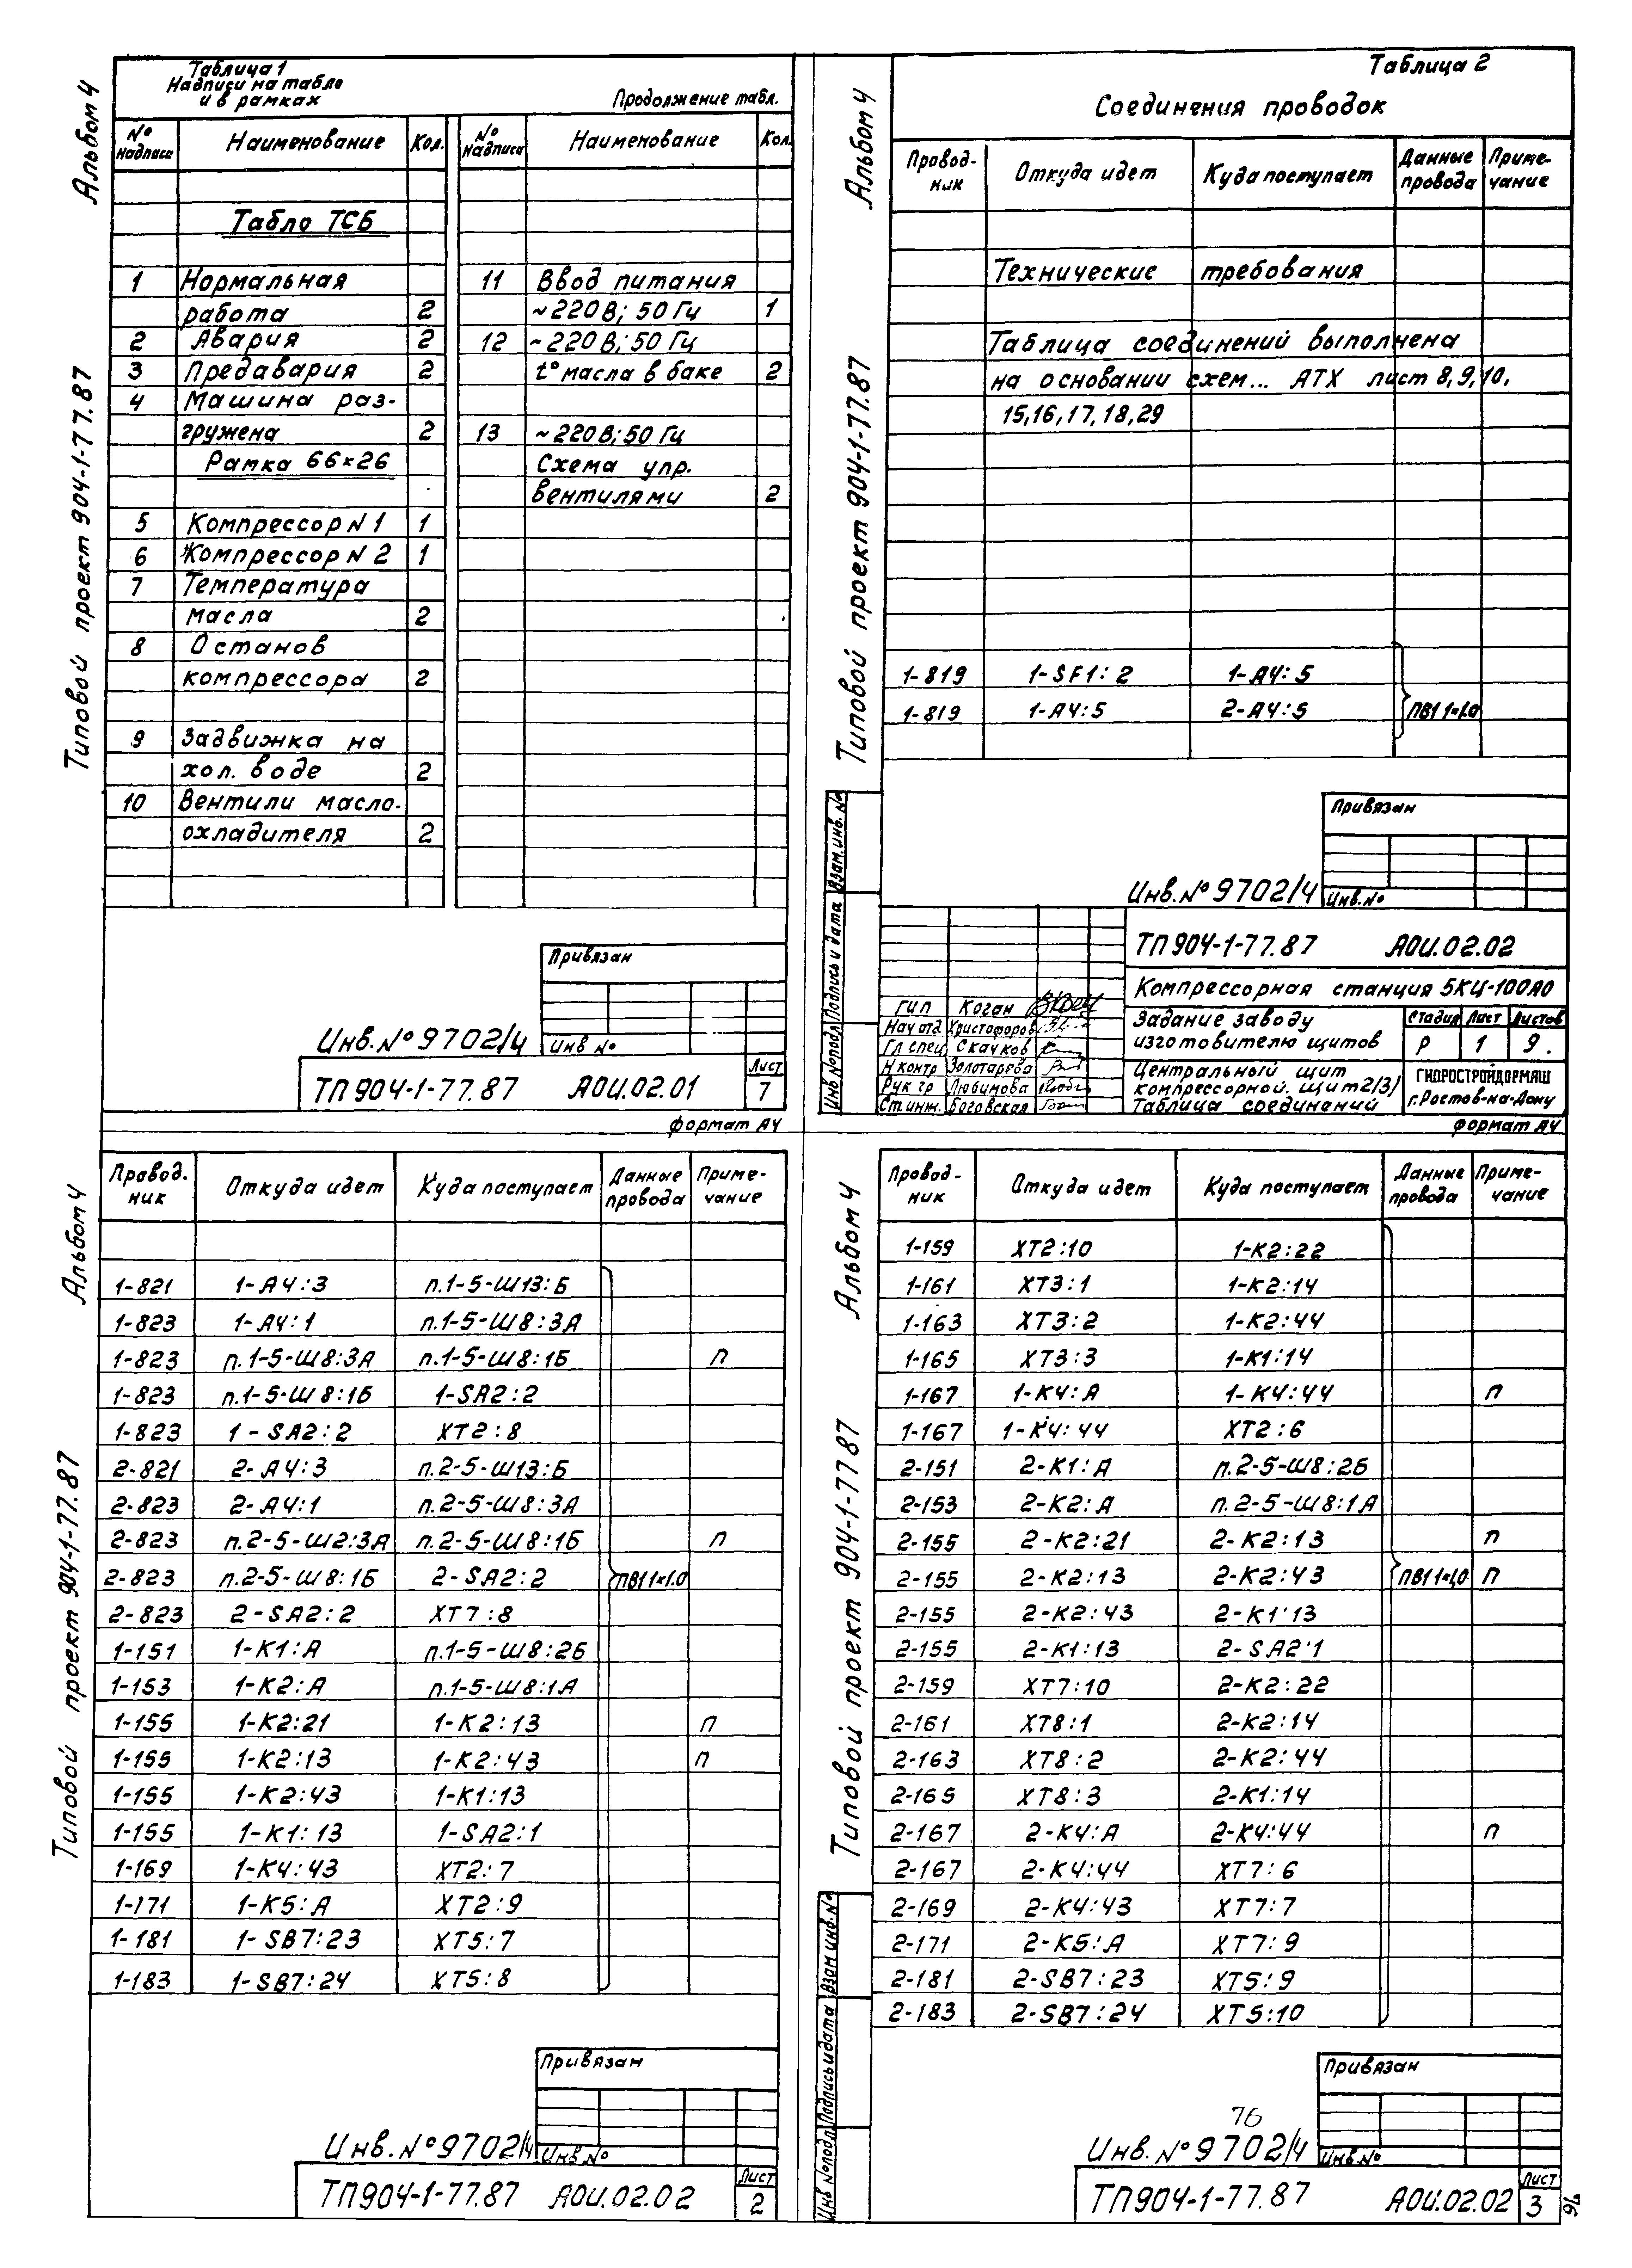 Альбом 4
Типовой проект 904-1-77.87
Таблица 1
Надписи на табло
и в рамках
Продолжение табл.
№ надписи Наименование Кол. № надписи Наименование Кол.
Табло ТСБ
1 Нормальная
работа 2
2 Авария 2
3 Предавария 2
4 Машина раз-
гружена 2
Рамка 66×26
5 Компрессор N 1 1
6 Компрессор N 2 1
7 Температура
масла 2
8 Останов
компрессора 2
9 Задвижка на
хол. воде 2
10 Вентили масло-
охладителя 2
11 Ввод питания
~220В; 50 Гц 1
12 ~220В; 50 Гц
t° масла в баке 2
13 ~220В; 50 Гц
Схема упр.
вентилями 2
Привязан
Инв. №
Инв. № 9702/4
ТП 904-1-77.87 АОИ.02.01
Лист
7
формат А4
Альбом 4
Типовой проект 904-1-77.87
Таблица 2
Соединения проводок
Провод-ник Откуда идет Куда поступает Данные провода Приме-чание
Технические требования
Таблица соединений выполнена
на основании схем... АТХ лист 8,9,10,
15,16,17,18,29
1-819 1-SF1:2 1-А4:5
1-819 1-А4:5 2-А4:5 ПВ1 1×1.0
Привязан
Инв. №
Инв. № 9702/4
Взам. инв. №
Подпись и дата
Инв № подл
ТП 904-1-77.87 АОИ.02.02
Компрессорная станция 5КЦ-100А0
ГИП Коган
Нач отд Христофоров
Гл спец Скачков
Н контр Золотарева
Рук гр Любимова
Ст. инж. Боговская
Задание заводу
изготовителю щитов
Стадия Лист Листов
Р 1 9.
Центральный щит
компрессорной. Щит 2(3)
Таблица соединений
ГИПРОСТРОЙДОРМАШ
г. Ростов-на-Дону
формат А4
Альбом 4
Типовой проект 904-1-77.87
Провод-ник Откуда идет Куда поступает Данные провода Приме-чание
1-821 1-А4:3 п.1-5-Ш13:Б
1-823 1-А4:1 п.1-5-Ш8:3А
1-823 п.1-5-Ш8:3А п.1-5-Ш8:1Б п
1-823 п.1-5-Ш8:1Б 1-SA2:2
1-823 1-SA2:2 XT2:8
2-821 2-А4:3 п.2-5-Ш13:Б
2-823 2-А4:1 п.2-5-Ш8:3А
2-823 п.2-5-Ш2:3А п.2-5-Ш8:1Б п
2-823 п.2-5-Ш8:1Б 2-SA2:2 ПВ1 1×1.0
2-823 2-SA2:2 XT7:8
1-151 1-К1:А п.1-5-Ш8:2Б
1-153 1-К2:А п.1-5-Ш8:1А
1-155 1-К2:21 1-К2:13 п
1-155 1-К2:13 1-К2:43 п
1-155 1-К2:43 1-К1:13
1-155 1-К1:13 1-SA2:1
1-169 1-К4:43 XT2:7
1-171 1-К5:А XT2:9
1-181 1-SB7:23 XT5:7
1-183 1-SB7:24 XT5:8
Привязан
Инв №
Инв. № 9702/4
ТП 904-1-77.87 АОИ.02.02
Лист
2
Альбом 4
Типовой проект 904-1-77 87
Провод-ник Откуда идет Куда поступает Данные провода Приме-чание
1-159 XT2:10 1-К2:22
1-161 XT3:1 1-К2:14
1-163 XT3:2 1-К2:44
1-165 XT3:3 1-К1:14
1-167 1-К4:А 1-К4:44 п
1-167 1-К4:44 XT2:6
2-151 2-К1:А п.2-5-Ш8:2Б
2-153 2-К2:А п.2-5-Ш8:1А
2-155 2-К2:21 2-К2:13 п
2-155 2-К2:13 2-К2:43 ПВ1 1×1,0 п
2-155 2-К2:43 2-К1:13
2-155 2-К1:13 2-SA2:1
2-159 XT7:10 2-К2:22
2-161 XT8:1 2-К2:14
2-163 XT8:2 2-К2:44
2-165 XT8:3 2-К1:14
2-167 2-К4:А 2-К4:44 п
2-167 2-К4:44 XT7:6
2-169 2-К4:43 XT7:7
2-171 2-К5:А XT7:9
2-181 2-SB7:23 XT5:9
2-183 2-SB7:24 XT5:10
Взам инв. №
Подпись и дата
Инв № подл
Привязан
76
Инв. №
Инв. № 9702/4
ТП 904-1-77.87 АОИ.02.02
Лист
3
76